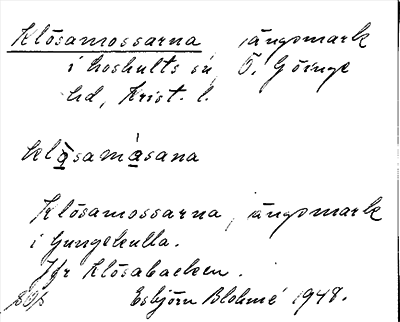 Klösamossarna, ängsmark
i Loshults sn, Ö. Göinge
hd, Krist. l.
klåsamåsana
Klösamossarna, ängsmark
i Gungekulla.
Jfr Klösabacken.
Esbjörn Blohmé 1948.